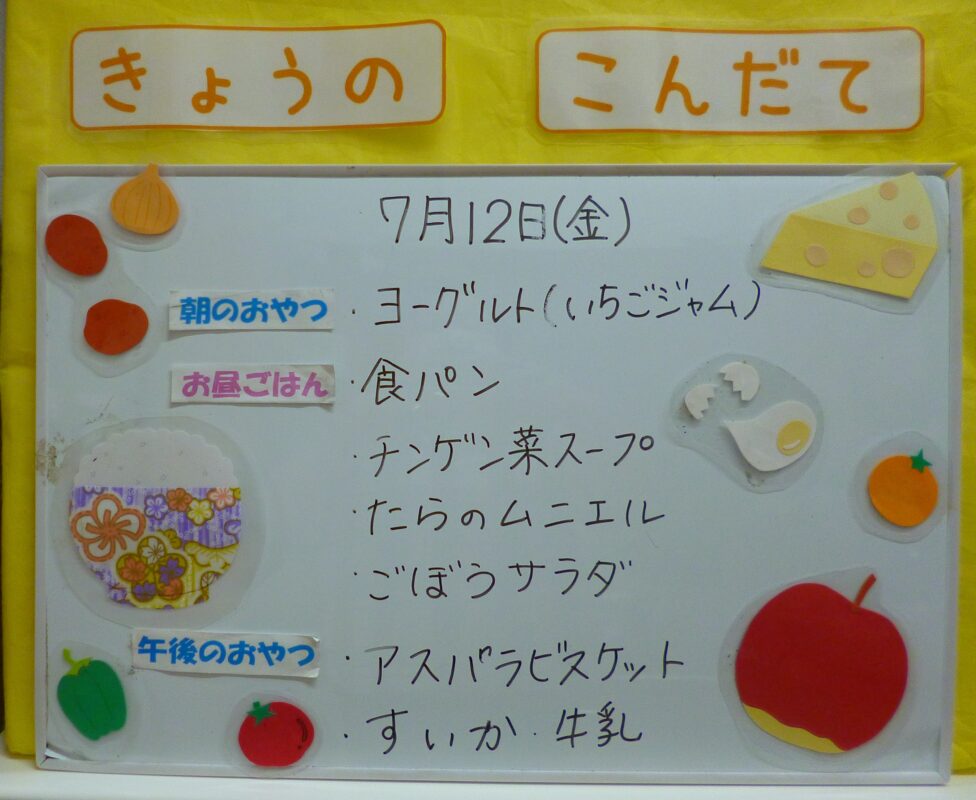 きょうの こんだて
7月12日(金)
朝のおやつ ・ヨーグルト(いちごジャム)
お昼ごはん ・食パン
・チンゲン菜スープ
・たらのムニエル
・ごぼうサラダ
午後のおやつ ・アスパラビスケット
・すいか・牛乳